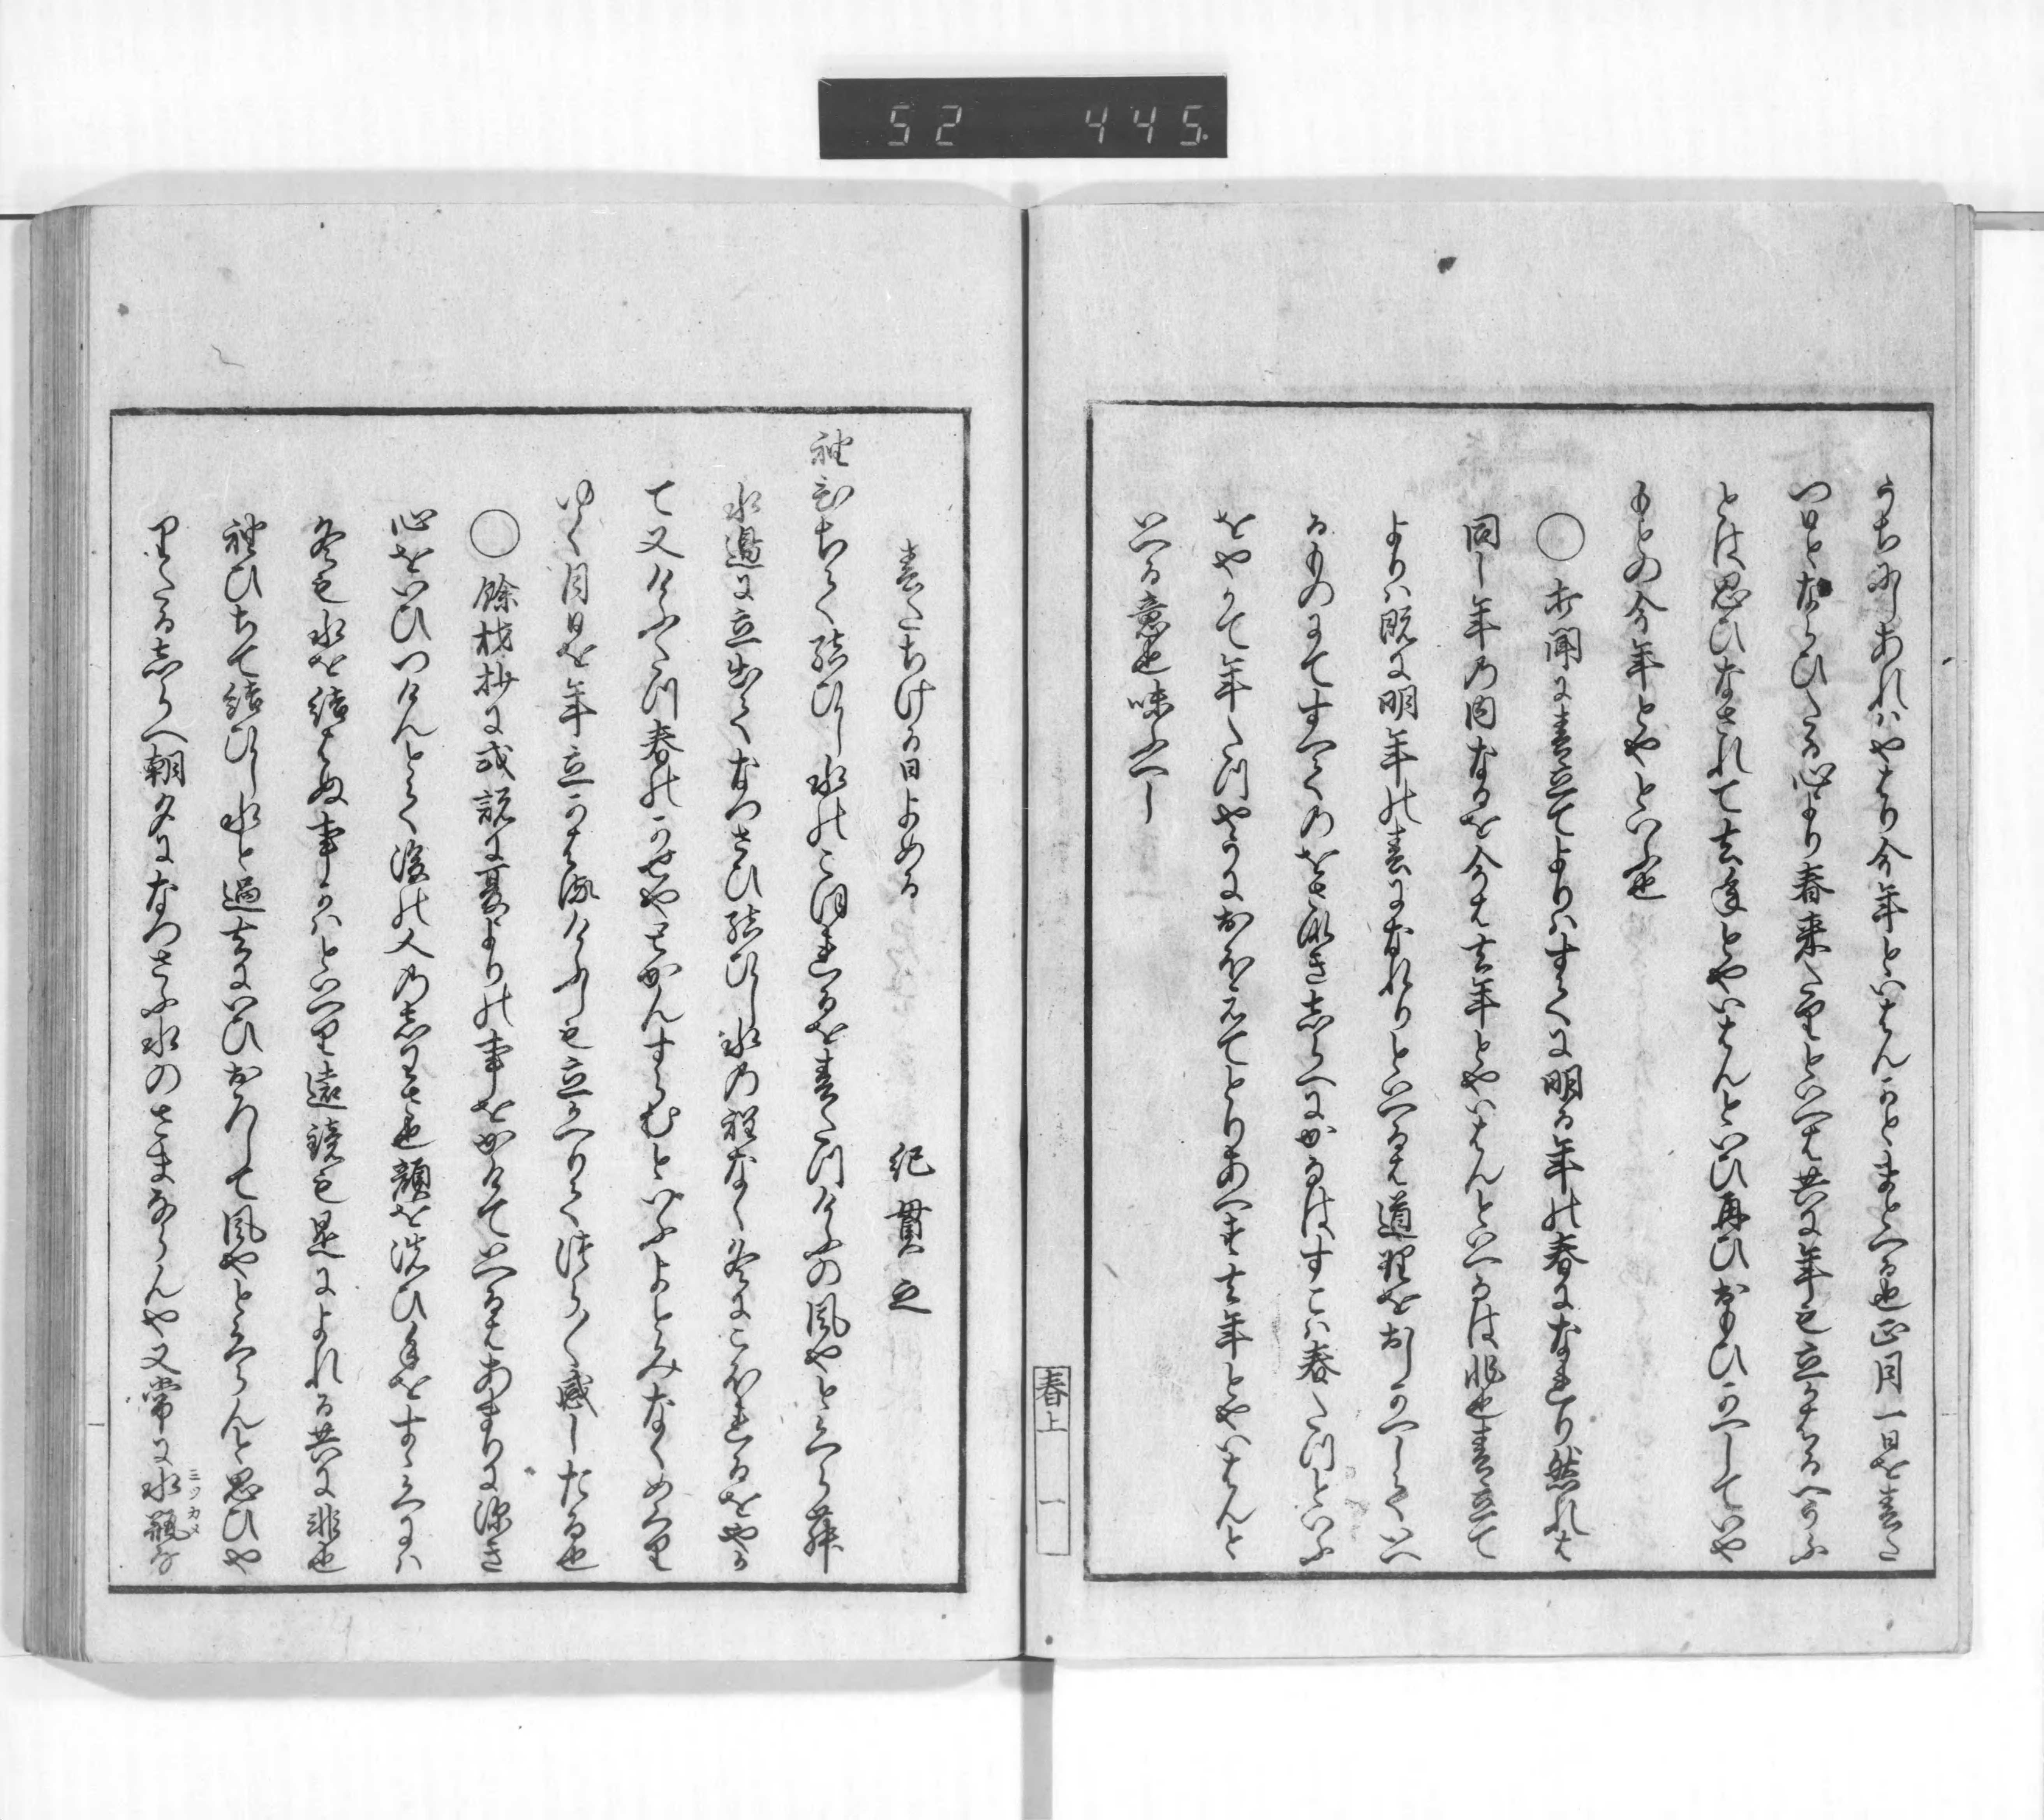 52 445
うちにしあれはやはり今年といはんかとまとへる也正月一日を春た
つ日とならひたる心より春来たりといへは共に年も立かはるへかふ
とは思ひなされて去年とやいはんといひ再ひおもひかへしていや
もとの今年とやといふ也
○打聞に春立てよりはすへて明る年の春になれり然れは
同し年の内なるを今は去年とやいはんといへるは非也春立て
よりは既に明年の春になれりといへるは道理をおしかへしていへ
るものにてすへてのをさなきしらへにかなはすこは春たつといふ
をやかて年たつやうにおほえてとりあへす去年とやいはんと
いへる意也味ふへし
春上 一
春たちける日よめる 紀貫之
袖ひちて結ひし水のこほれるを春たつけふの風やとくらむ
水邊に立出てなつさひ結ひし水の程なく冬にこほれるをやか
て又けふたつ春のかせやとかんすらむといふよとみなくめくり
ゆく月日を年立かはるけふしも立かへりてつらつら感したる也
○餘材抄に或説に夏よりの事をかけていへるはあまりに深き
心をいひつけんとて後の人のしわさ也顔を洗ひ手をすゝくには
冬も水を結はぬ事かはといへり遠鏡も是によれる共に非也
袖ひちて結ひし水と過去にいひおろして風やとくらんと思ひや
りたるしらへ朝夕になつさふ水のさまならんや又常に水瓶ミツカメな